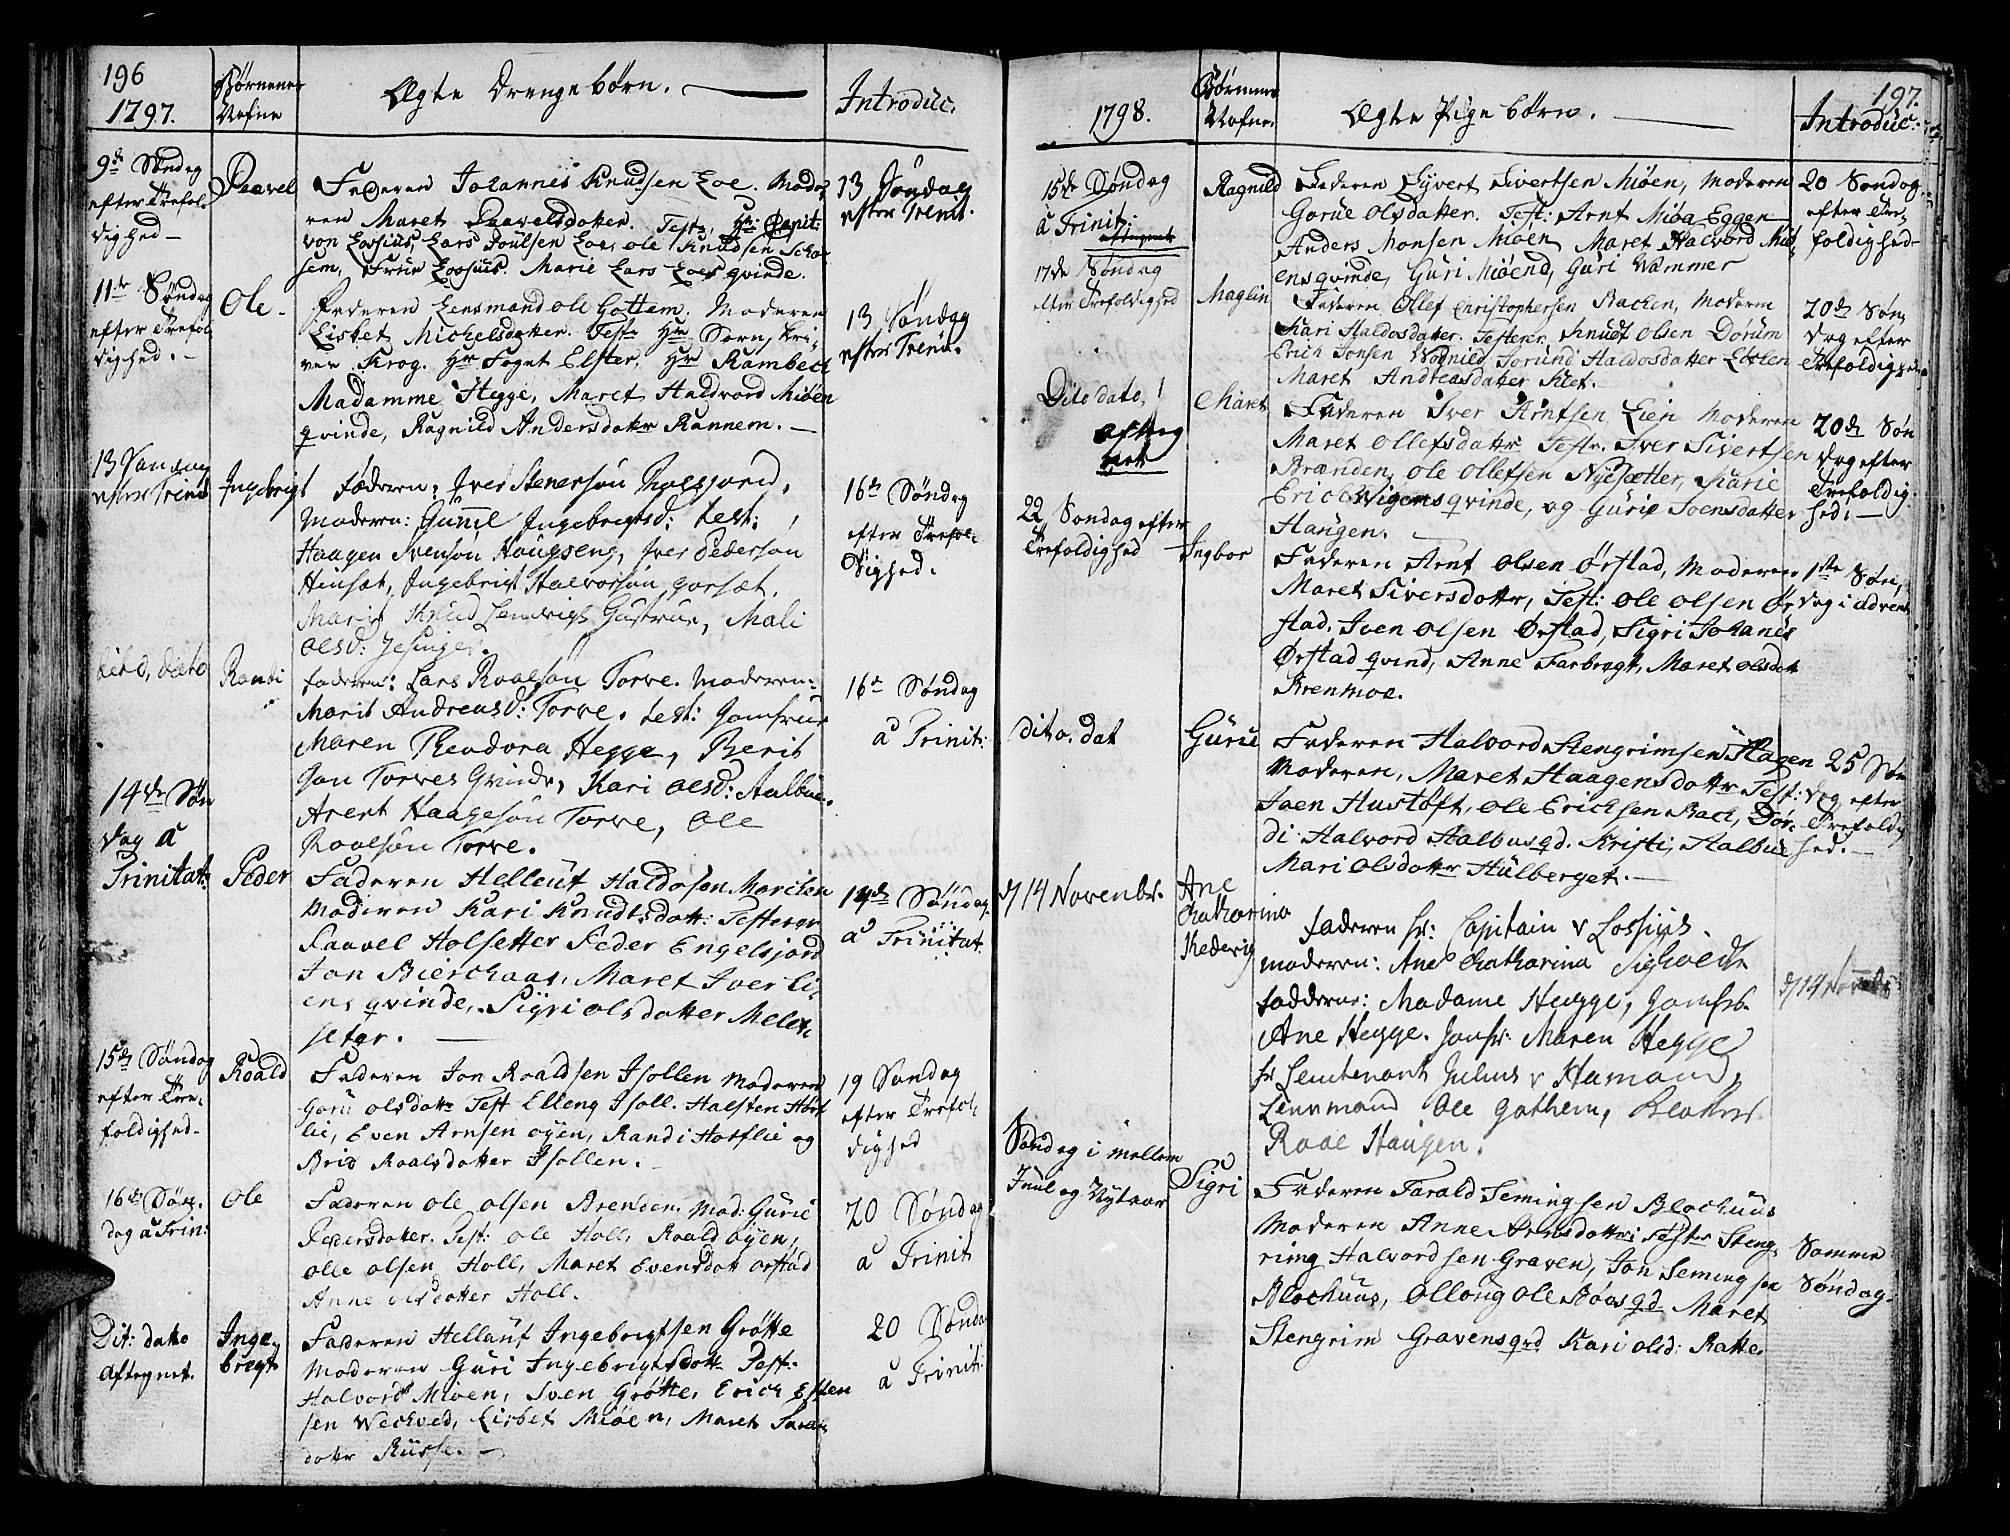 196
1797.
Børnenes
Nafne
Ægte Drengebørn.
Introduc.
9de Søndag
efter Trefol-
dighed
Paavel
Faderen Johannes Knudsen Loe. Mode-
ren Maret Paavelsdatter. Test: Hr: Capit:
von Lossius, Lars Poulsen Loe, ole Knudsen Schor
sem, Frue Lossius. Marie Lars Loes qvinde.
13 Søndag
efter Trenit.
11te Søndag
efter Trefol
dighed.
Ole
Faderen Lensmand ole Gottem. Moderen
Lisbet Michelsdatter. Test: Hr Sorn, skri-
ver Krog. Hr Foget Elster. Hr Rambech
Madamme Hegge, Maret Haldvord Miøen
qvinde, Ragnild Andersdattr Rannem.
13 Søndag
efter Trenit.
13 Søndag
efter Trinit
Ingebrigt
Faderen: Iver Stenersøn
Moderen: Gunnil Ingebrigtsd: test:
Haagen Svensøn Haugseng, Iver Pedersøn
Hensæt, Ingebrigt Halvorsøn gorset,
Marit Knud Lendrigs Gustrue, Mali
olsd:
16de Søndag
efter Trefol-
dighed.
dito, dato
Randi
faderen: Lars Roalsøn Torve. Moderen:
Marit Andreasd: Torve. test: Jomfrue
Maren Theodora Hegge, Berit
Jon Torves Qvinde, Kari olsd: Aalbue.
Arent Haagesøn Torve, Ole
Roalsøn Torve.
16de Søndag
a Trinit:
14de Søn
dag a
Trinitat:
Peder
Faderen Helleuf Haldosen
Moderen Kari Knudtsdatt: Testerer
Paavel Holsetter Peder Engelsjord
Jon Bierchaas, Maret Iver Li-
ens qvinde, Sigri olsdatter Melem
seter.
14de Søndag
a Trinitat.
15de Søndag
efter Tre-
foldighed.
Roald
Faderen Jon Roaldsen Isollen Moderen
Goru olsdatr Test Elleng Isoll. Halsten Horf
lie, Even Arnsen øyen, Randi Horflie og
Brid Roalsdatter Isollen.
19 Søndag
efter Trefol-
dighed
16de Søn-
dag a Trin:
ole
Faderen ole olsen Brenden. Mod: Gurie
Pedersdatter. Test: ole Holl, Roald øyen,
olle olsen Holl, Maret Evensdatr orstad
Anne olsdatter Holl.
20 Søndag
a Trinit
Dit: dato
Aftegnet.
Inge-
bregt
Faderen Hellauf Ingebrigtsen Grøtte
Moderen Guri Ingebrigtsdatr Test:
Halvord Miøen, Sven Grøtte, Erich Esten
sen Weckved, Lisbet Miøen, Maret
datr Russe.
20 Søndag
a Trinit:
197.
1798.
Børnenes
Nafne.
Ægte Pigebørn.
Introduc:
15de Søndag
a Trinit:
aftegnet
Ragnild
Faderen Syvert Sivertsen Miøen, Moderen
Gorue olsdatter. Test: Arnt Miøa Eggen
Anders Monsen Miøen, Maret Halvord Miø
ens qvinde, Guri Miøend, Guri Wammer
20 Søndag
efter Tre-
foldighed
17de Søndag
efter Trefoldighed
Maglin
Faderen Ollef Christophersen Bachen, Moderen
Kari Haldosdatter. Testerer Knudt olsen Dorum
Erich Jonsen Wognild Jorund Haldosdatter
Maret Andreasdatter Klet.
20de Søn-
dag efter
Trefoldighed
Dito dato,
afteg
net
Maret
Faderen Iver Arntsen Lien Moderen
Maret Ollefsdattr Testr. Iver Sivertsen
Brænden, ole Ollefsen Nysætter, Marie
Erich Wigens qvinde, og Gurie Svensdatter
Haugen.
20de Søn
dag efter
Trefoldig-
hed.
22 Søndag efter
Trefoldighed
Ingbor
Faderen Arnt olsen Ørstad, Moderen
Maret Siversdattr, Test: ole olsen Ør-
stad, Sven olsen Ørstad, Sigri Johanes
Ørstad qvind, Anne Farbregt, Maret olsdatr
Brenmoe.
1ste Søn-
dag i advent
dito. dat
Gurue
Faderen Halvord Stengrimsen Hagen
Moderen, Maret Haagensdattr Test:
Sven Hustøft, ole Erichsen Bach, Dor-
di Halvord Halbus qd. Kristi Halbue
Mari olsdattr Hulberget.
25 Søn
dag efter
Trefoldig
hed.
d/14 Novenbr.
Ane
Chatharina
Hedevig
faderen hr: Capitain v Lossius.
moderen: Ane Chatharina Sigholdt
fadderne: Madame Hegge, Jomfr.
Ane Hegge. Jomfr: Maren Hegge
hr Leutenant Julius v Hamand,
Lensmand Ole Gothem,
Roae Haugen.
d/14 Novebr
Søndag i mellem
Juul og Nytaar
Sigri
Faderen Farald Semingsen Blochuus
Moderen Anne Arnsdattr: Testr Steng-
ring Halvordsen Graven, Jon Semingsen
Blochuus, Ollong ole Bøos qd Maret
Stengrim Gravens qvd Kari olsd: Ratte.
Samme
Søndag.